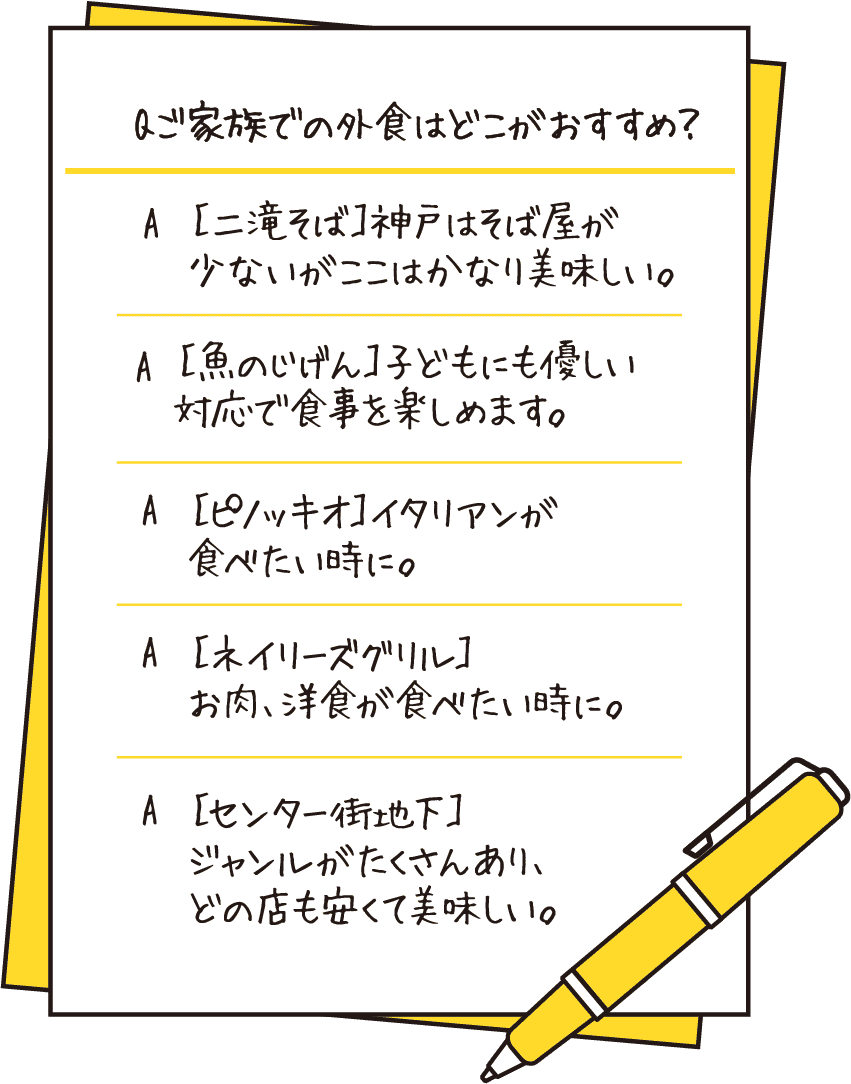 Qご家族での外食はどこがおすすめ?
A [二滝そば]神戸はそば屋が
少ないがここはかなり美味しい。
A [魚のじげん]子どもにも優しい
対応で食事を楽しめます。
A [ピノッキオ]イタリアンが
食べたい時に。
A [ネイリーズグリル]
お肉、洋食が食べたい時に。
A [センター街地下]
ジャンルがたくさんあり、
どの店も安くて美味しい。